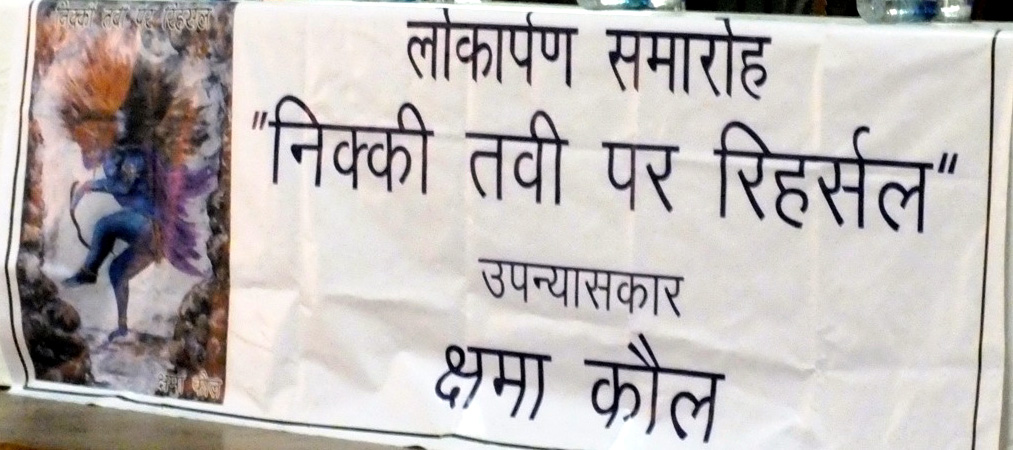 निक्की तवी पर रिहर्सल
क्षमा कौल
लोकार्पण समारोह
"निक्की तवी पर रिहर्सल"
उपन्यासकार
क्षमा कौल